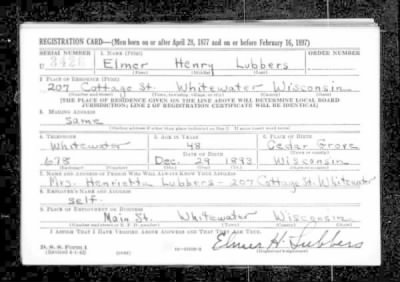 REGISTRATION CARD—(Men born on or after April 28, 1877 and on or before February 16, 1897)
SERIAL NUMBER 1. NAME (Print) ORDER NUMBER
U 3426 Elmer Henry Lubbers
(First) (Middle) (Last)
2. PLACE OF RESIDENCE (Print)
207 Cottage St. Whitewater Wisconsin
(Number and street) (Town, township, village, or city) (County) (State)
[THE PLACE OF RESIDENCE GIVEN ON THE LINE ABOVE WILL DETERMINE LOCAL BOARD
JURISDICTION; LINE 2 OF REGISTRATION CERTIFICATE WILL BE IDENTICAL]
3. MAILING ADDRESS
Same
[Mailing address if other than place indicated on line 2. If same insert word same]
4. TELEPHONE 5. AGE IN YEARS 6. PLACE OF BIRTH
Whitewater 48 Cedar Grove
DATE OF BIRTH (Town or county)
678 Dec. 29 1893 Wisconsin
(Exchange) (Number) (Mo.) (Day) (Yr.) (State or country)
7. NAME AND ADDRESS OF PERSON WHO WILL ALWAYS KNOW YOUR ADDRESS
Mrs. Henrietta Lubbers - 207 Cottage St. Whitewater
8. EMPLOYER'S NAME AND ADDRESS
self.
9. PLACE OF EMPLOYMENT OR BUSINESS
Main St. Whitewater Wisconsin
(Number and street or R. F. D. number) (Town) (County) (State)
I AFFIRM THAT I HAVE VERIFIED ABOVE ANSWERS AND THAT THEY ARE TRUE.
D. S. S. Form 1
(Revised 4-1-42) (over) Elmer H. Lubbers
(Registrant's signature)